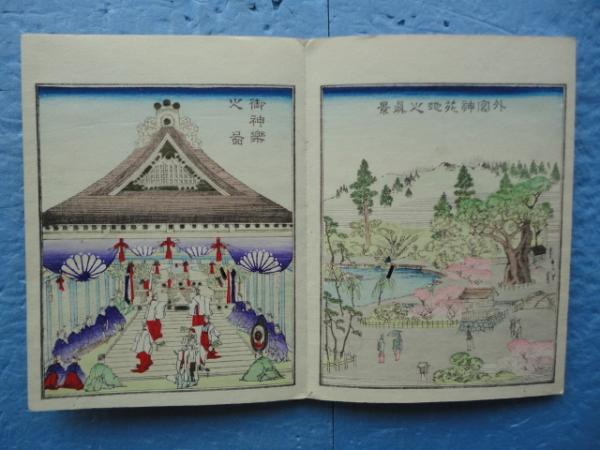 外宮神苑地之眞景
御神樂
之圖